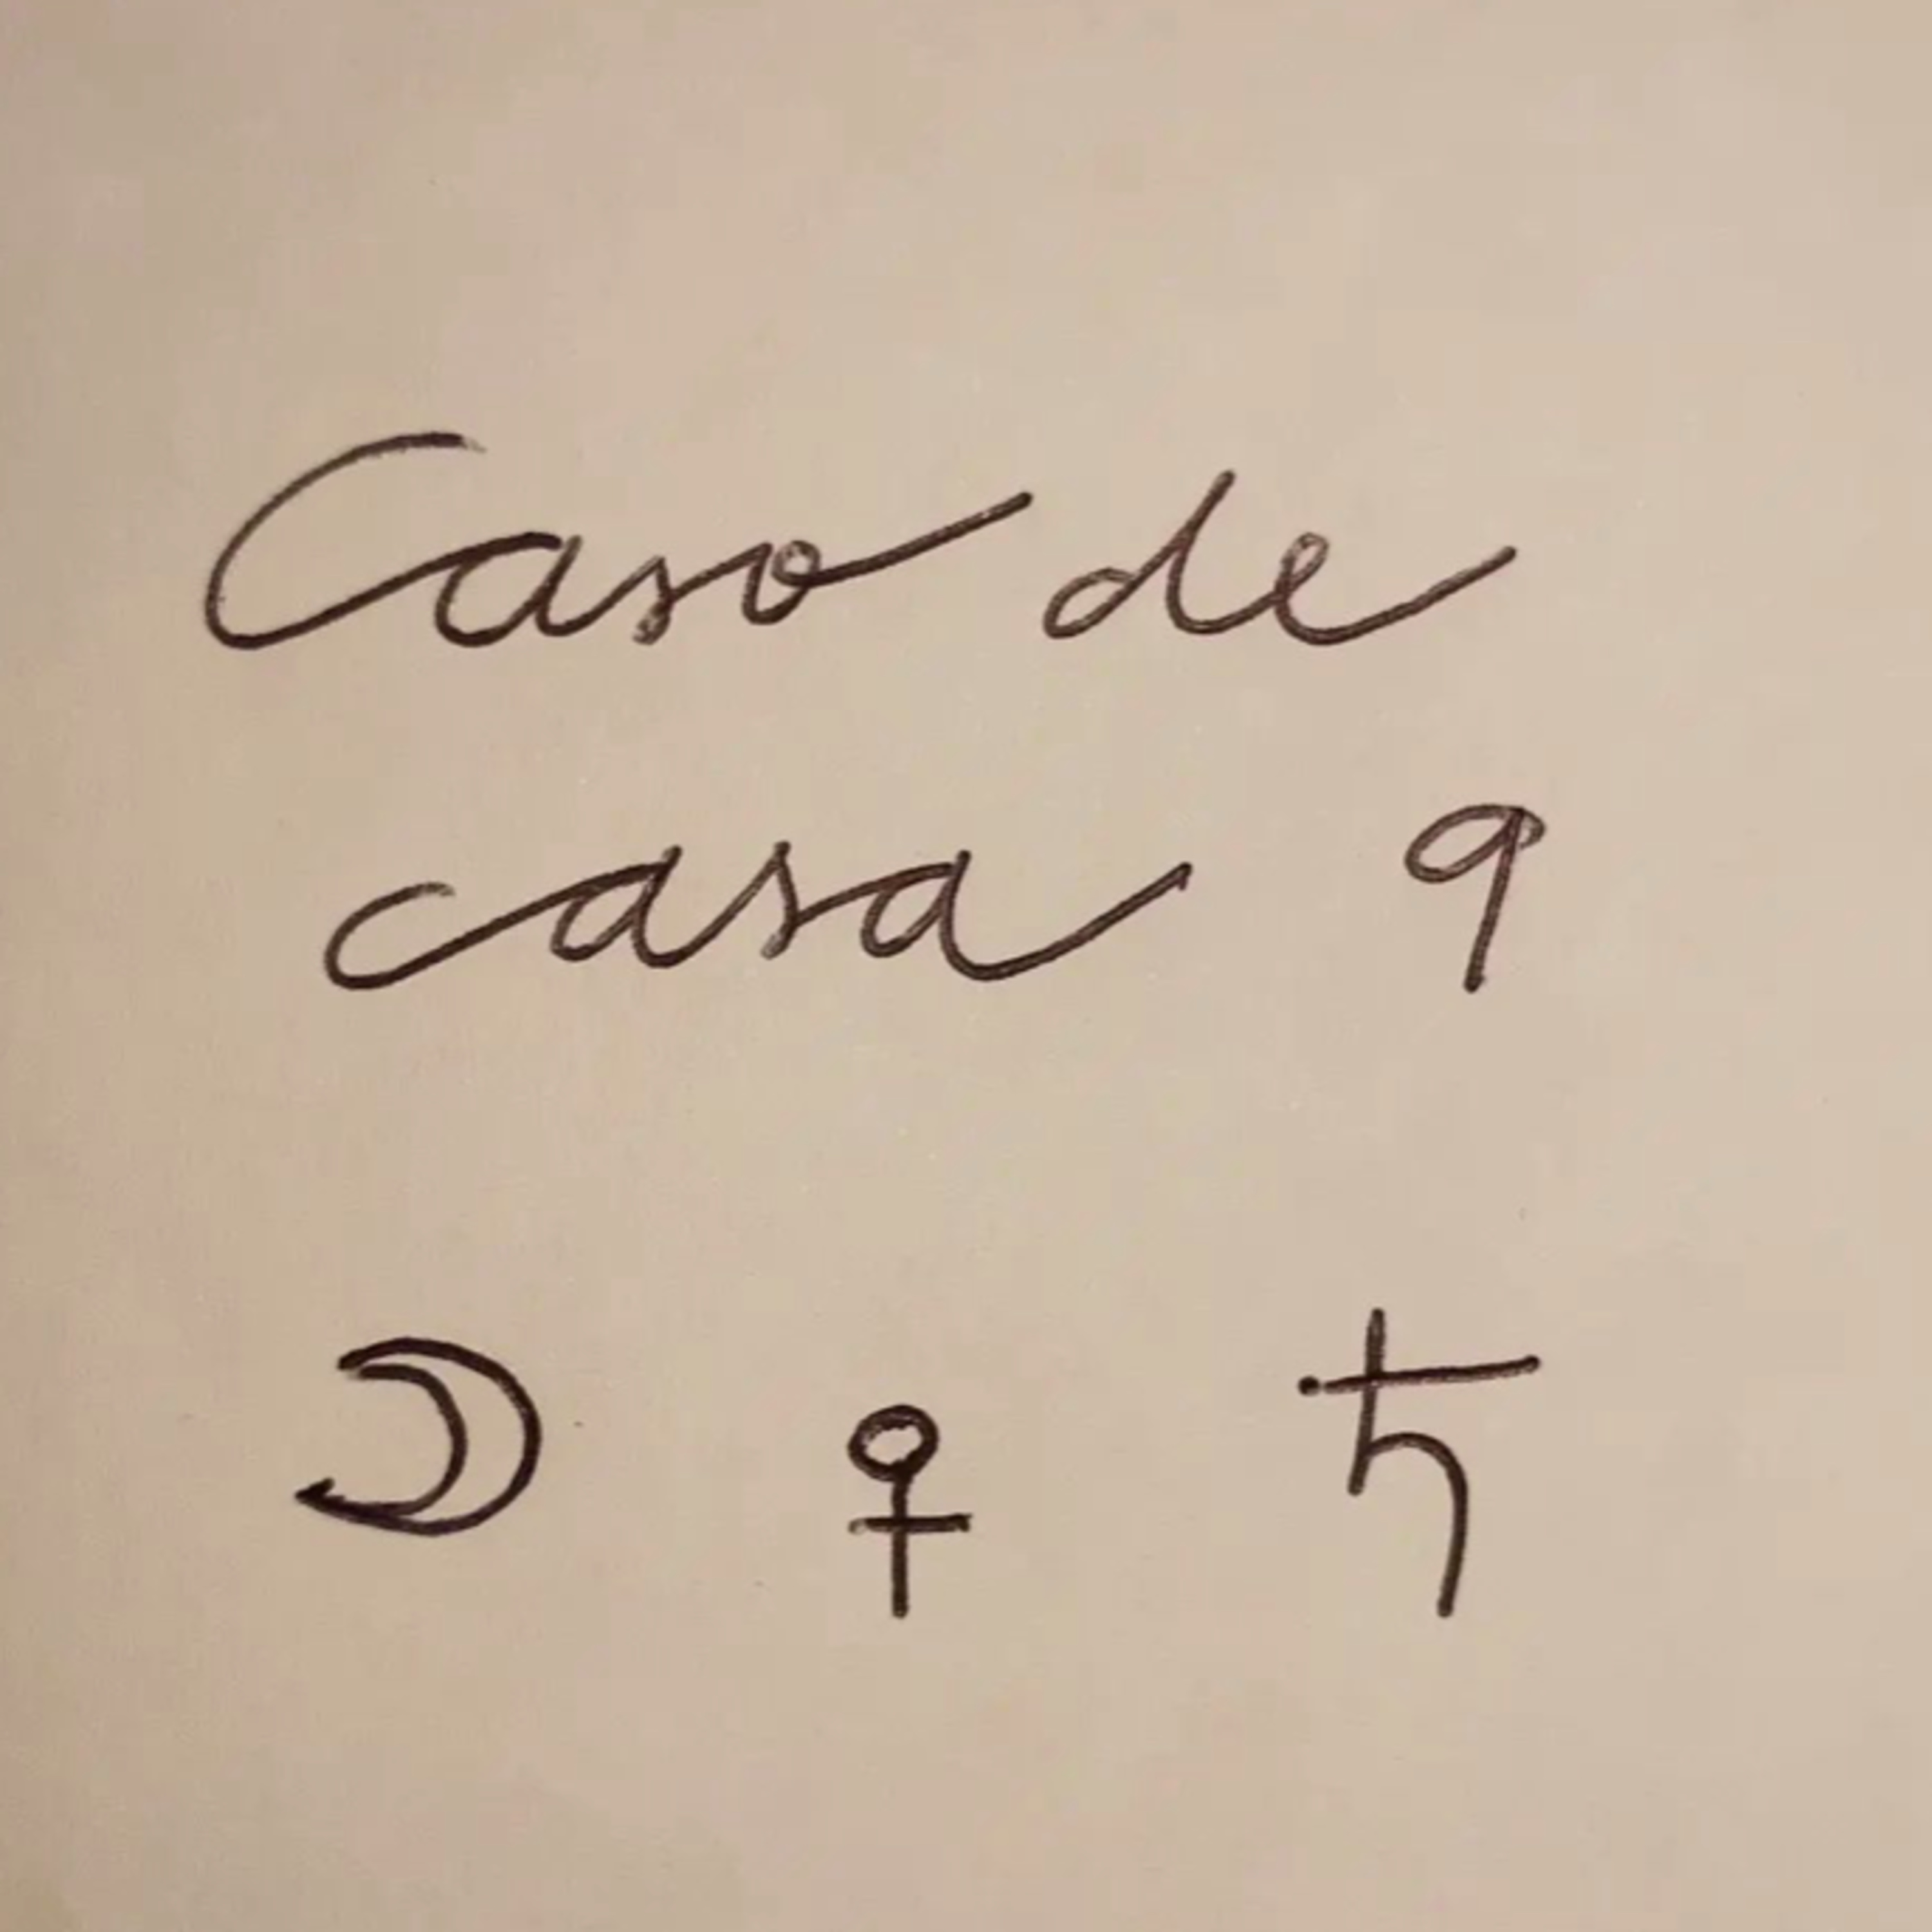 Caso de
casa 9
☽ ♀ ♄